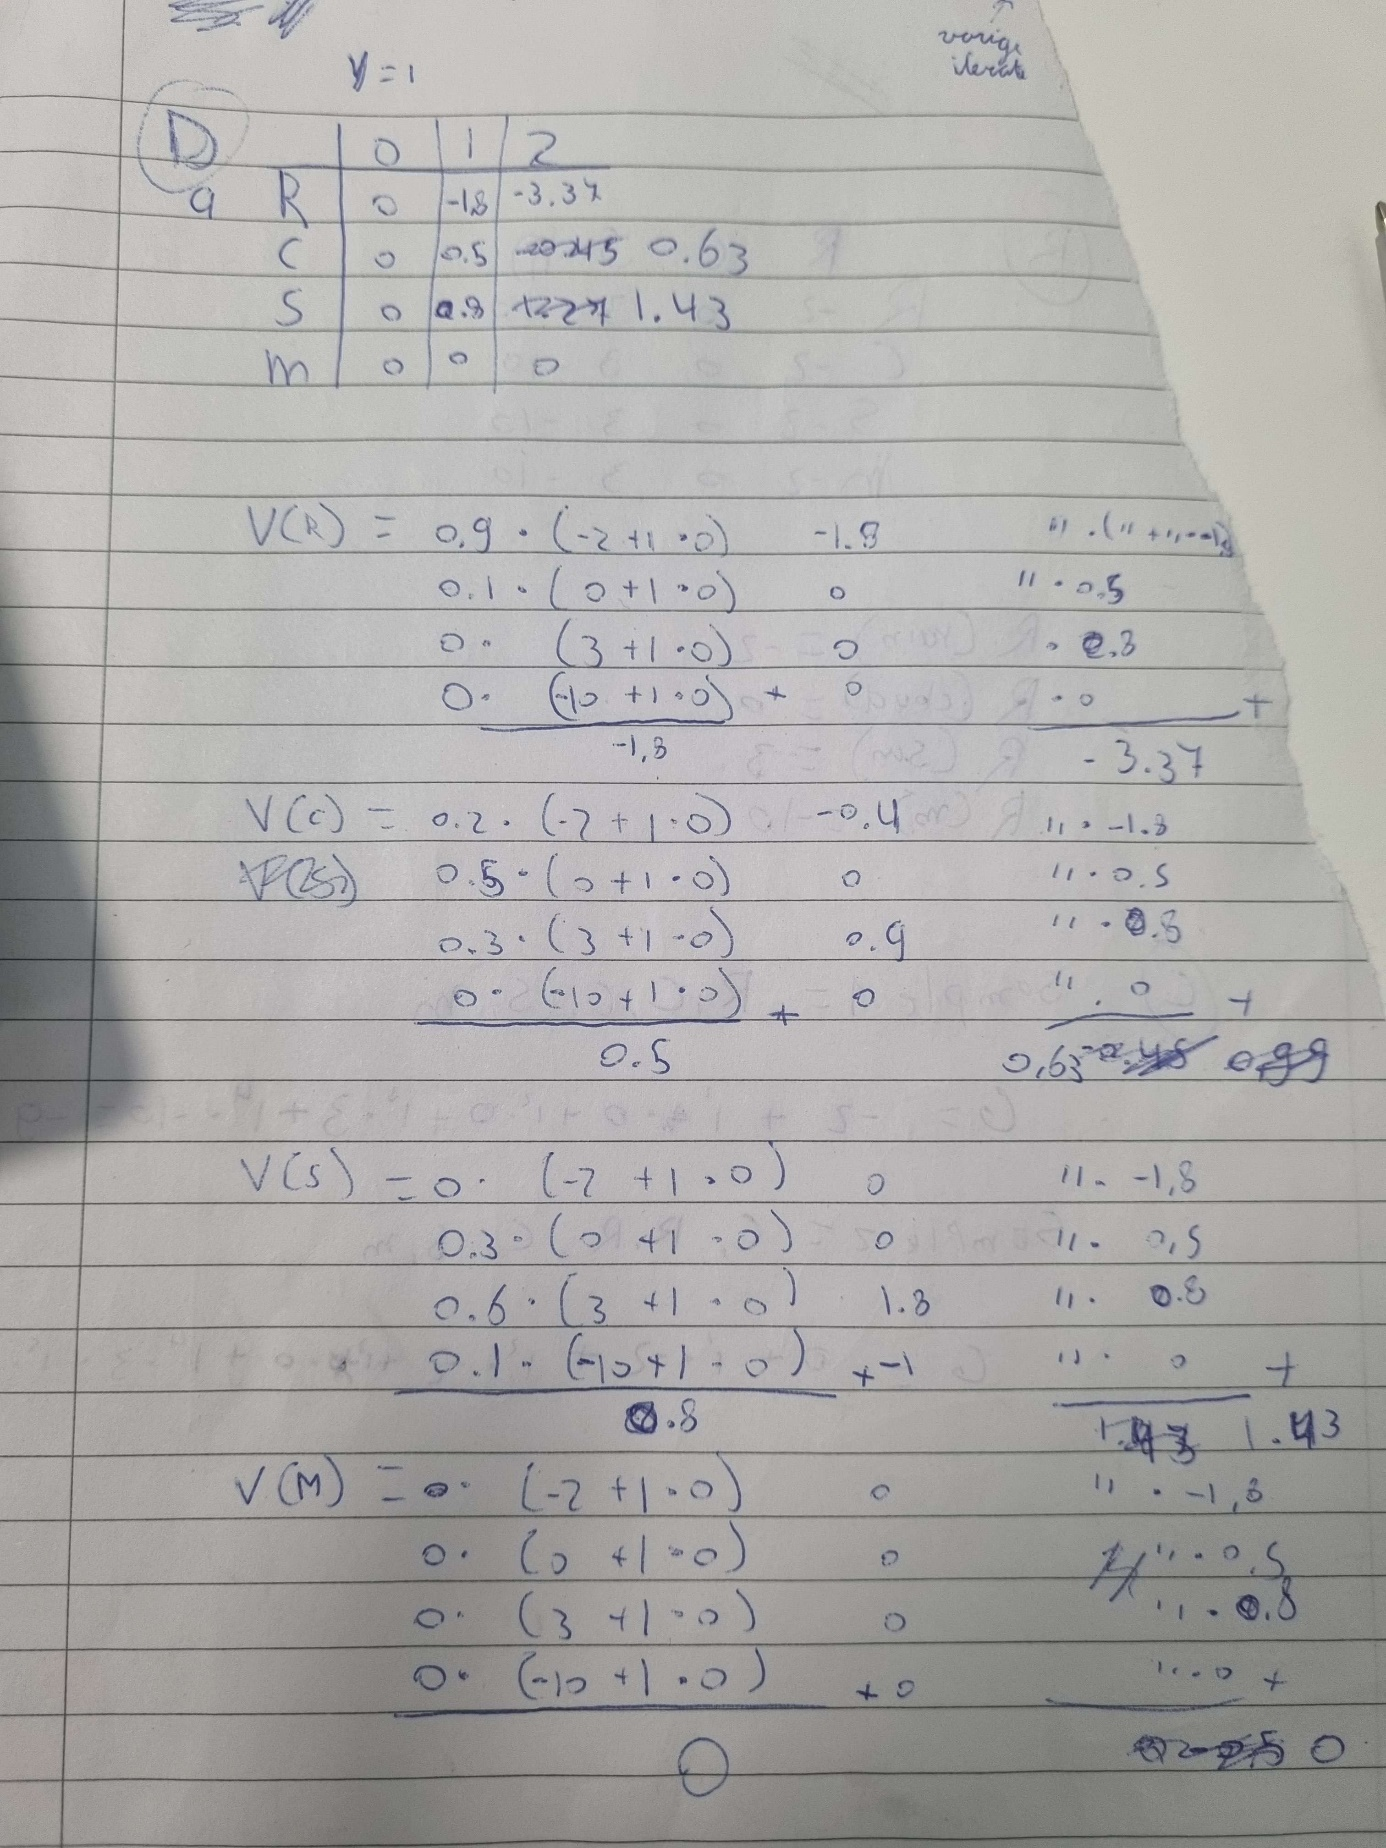 vorige
iteratie
γ = 1
D 0 1 2
a R 0 -1.8 -3.37
C 0 0.5 0.63
S 0 0.8 1.43
m 0 0 0
V(R) = 0.9 · (-2 + 1 · 0) -1.8 " · (" + " · -1.8)
0.1 · (0 + 1 · 0) 0 " · 0.5
0 · (3 + 1 · 0) 0 · 0.8
0 · (-10 + 1 · 0) + 0 · 0 +
-1.8 -3.37
V(C) = 0.2 · (-2 + 1 · 0) -0.4 " · -1.8
0.5 · (0 + 1 · 0) 0 " · 0.5
0.3 · (3 + 1 · 0) 0.9 " · 0.8
0 · (-10 + 1 · 0) + 0 " · 0 +
0.5 0,63
V(S) = 0 · (-2 + 1 · 0) 0 " · -1,8
0.3 · (0 + 1 · 0) 0 " · 0,5
0.6 · (3 + 1 · 0) 1.8 " · 0.8
0.1 · (-10 + 1 · 0) + -1 " · 0 +
0.8 1.43
V(M) = 0 · (-2 + 1 · 0) 0 " · -1,8
0 · (0 + 1 · 0) 0 " · 0.5
0 · (3 + 1 · 0) 0 " · 0.8
0 · (-10 + 1 · 0) + 0 " · 0 +
0 0